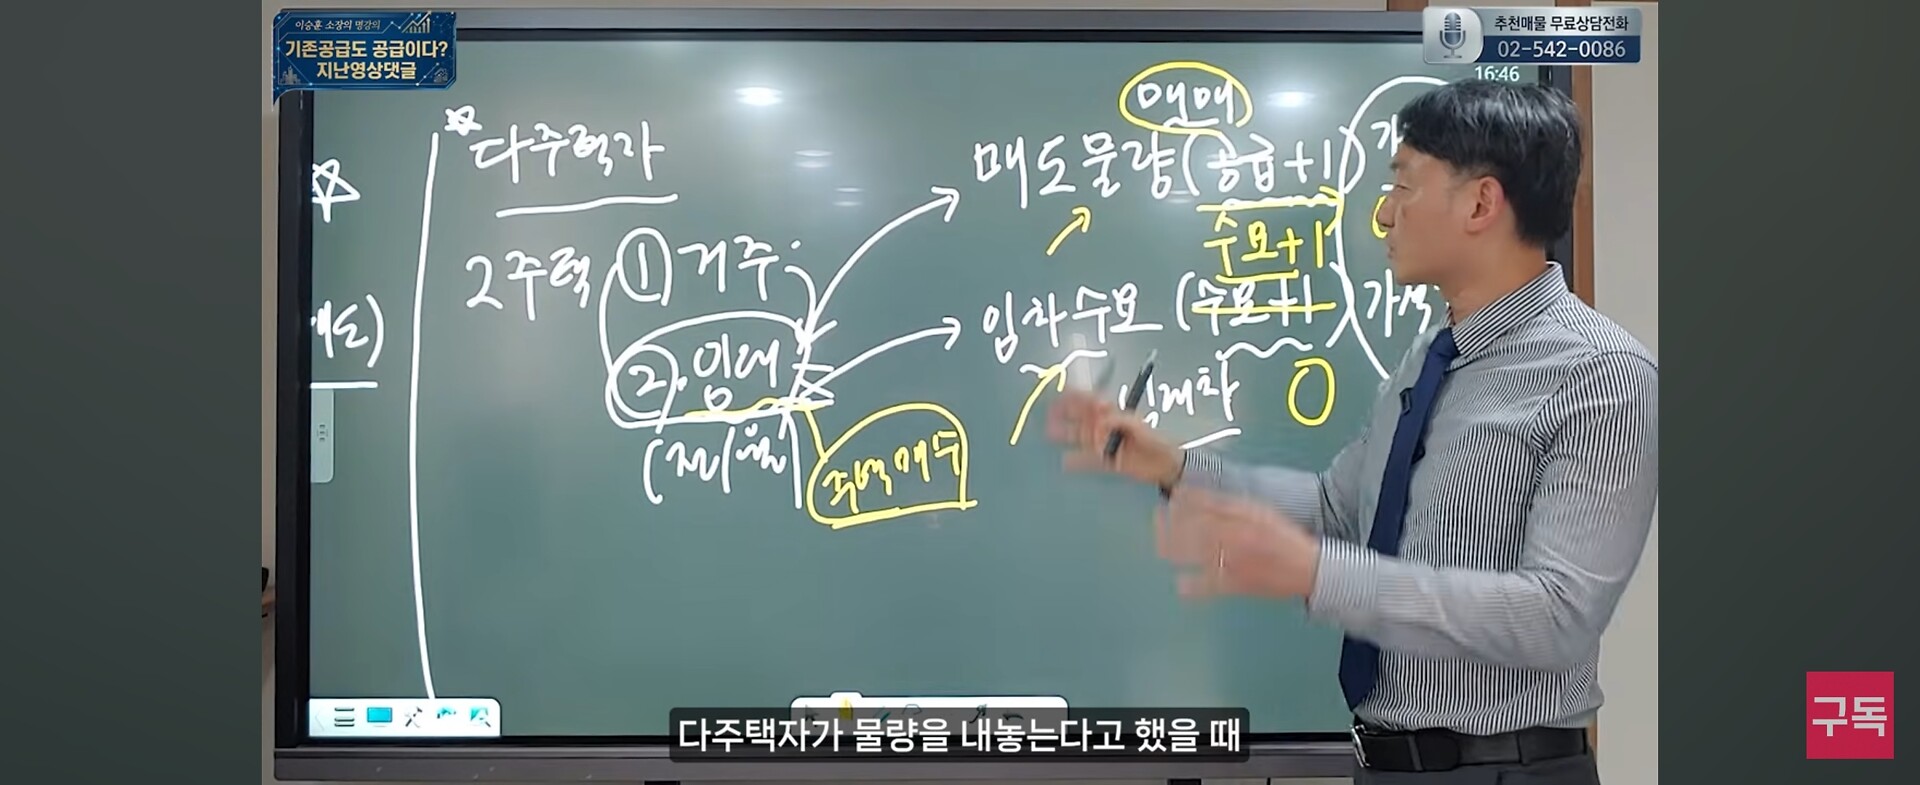 이승훈 소장의 명강의
기존공급도 공급이다?
지난영상댓글
추천매물 무료상담전화
02-542-0086
16:46
매매
다주택자
매도물량(공급+1)
수요+1
2주택 ① 거주
임차수요 (수요+1)
② 임대
임대차 0
(전/월)
주택매수
다주택자가 물량을 내놓는다고 했을 때
구독